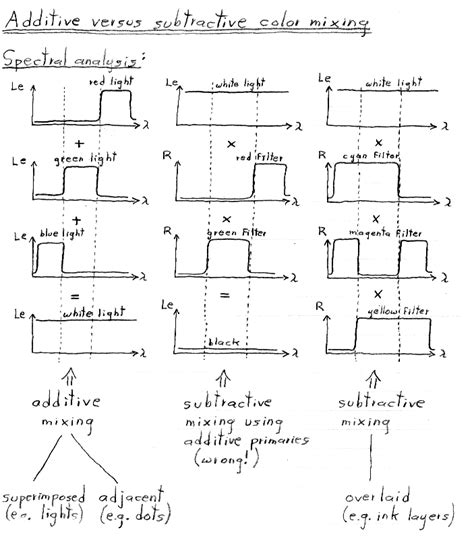 Additive versus subtractive color mixing
Spectral analysis:
Le red light λ
+
Le green light λ
+
Le blue light λ
=
Le white light λ
additive
mixing
superimposed
(e.g. lights)
adjacent
(e.g. dots)
Le white light λ
×
R red filter λ
×
R green filter λ
=
Le black λ
subtractive
mixing using
additive primaries
(wrong!)
Le white light λ
×
R cyan filter λ
×
R magenta filter λ
×
R yellow filter λ
subtractive
mixing
overlaid
(e.g. ink layers)